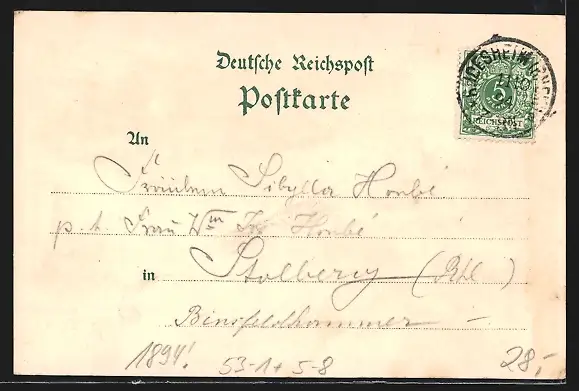 Deutsche Reichspost
Postkarte
RÜDESHEIM
5
REICHSPOST
An
Fräulein Sibylla Honbé
p. A. Frau Wwe Honbé
in Stolberg (Rhl)
Binsfeldhammer –
1894! 53-1+5-8 28,-